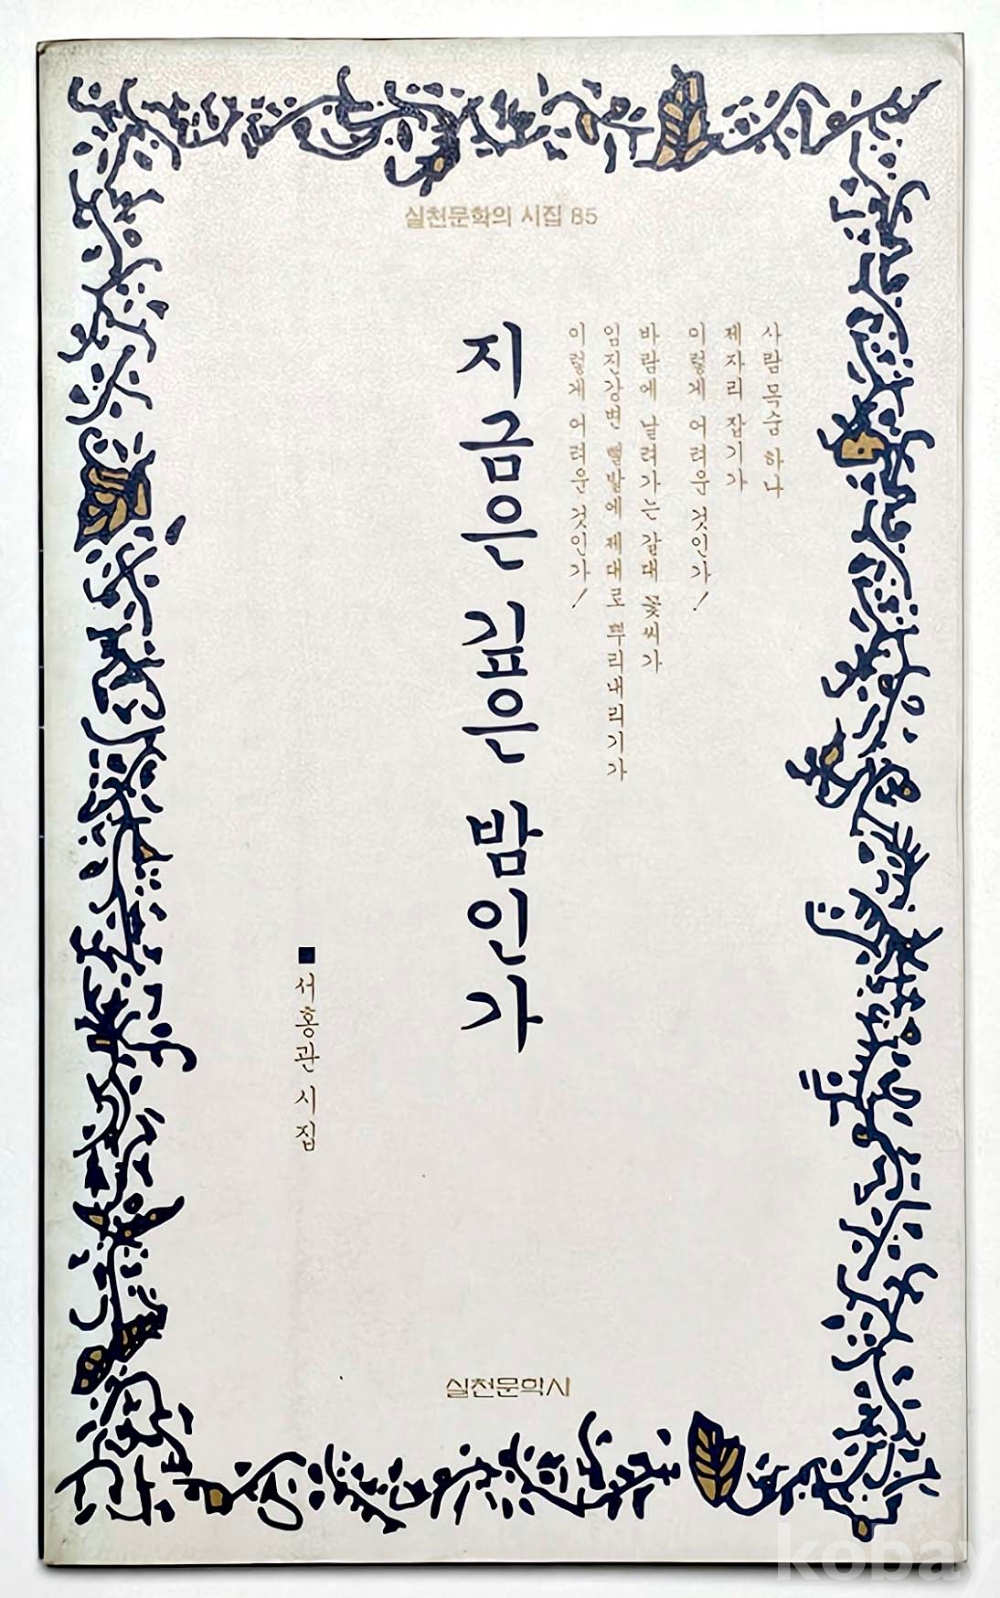 실천문학의 시집 85
사람 목숨 하나
제자리 잡기가
이렇게 어려운 것인가!
바람에 날려가는 갈대 꽃씨가
임진강변 뻘밭에 제대로 뿌리내리기가
이렇게 어려운 것인가!
지금은 깊은 밤인가
■ 서홍관 시집
실천문학사
kobay